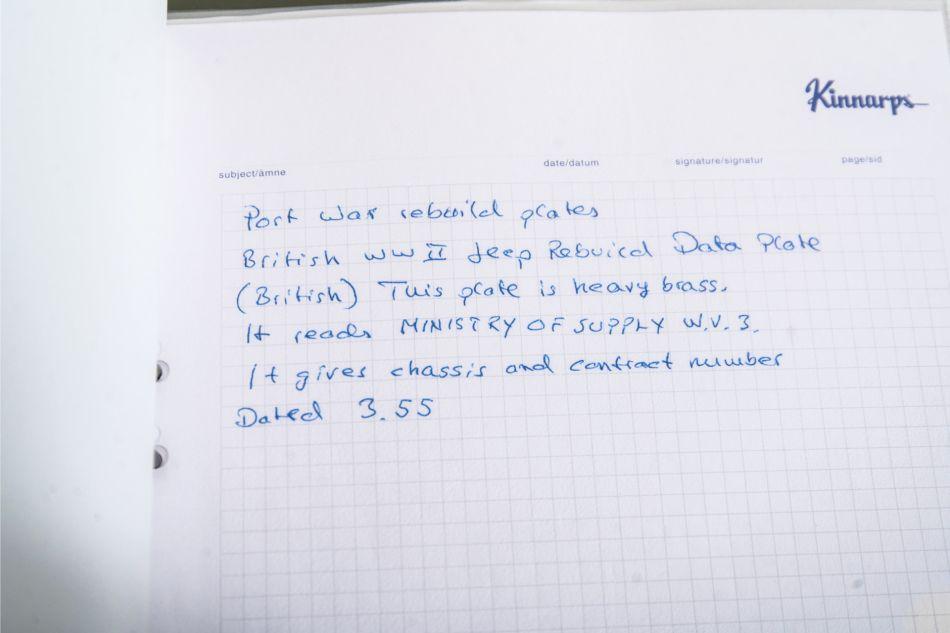 Kinnarps
subject/ämne date/datum signature/signatur page/sid
Post War rebuild plates
British WW II Jeep Rebuild Data Plate
(British) This plate is heavy brass.
It reads MINISTRY OF SUPPLY W.V.3.
It gives chassis and contract number
Dated 3.55